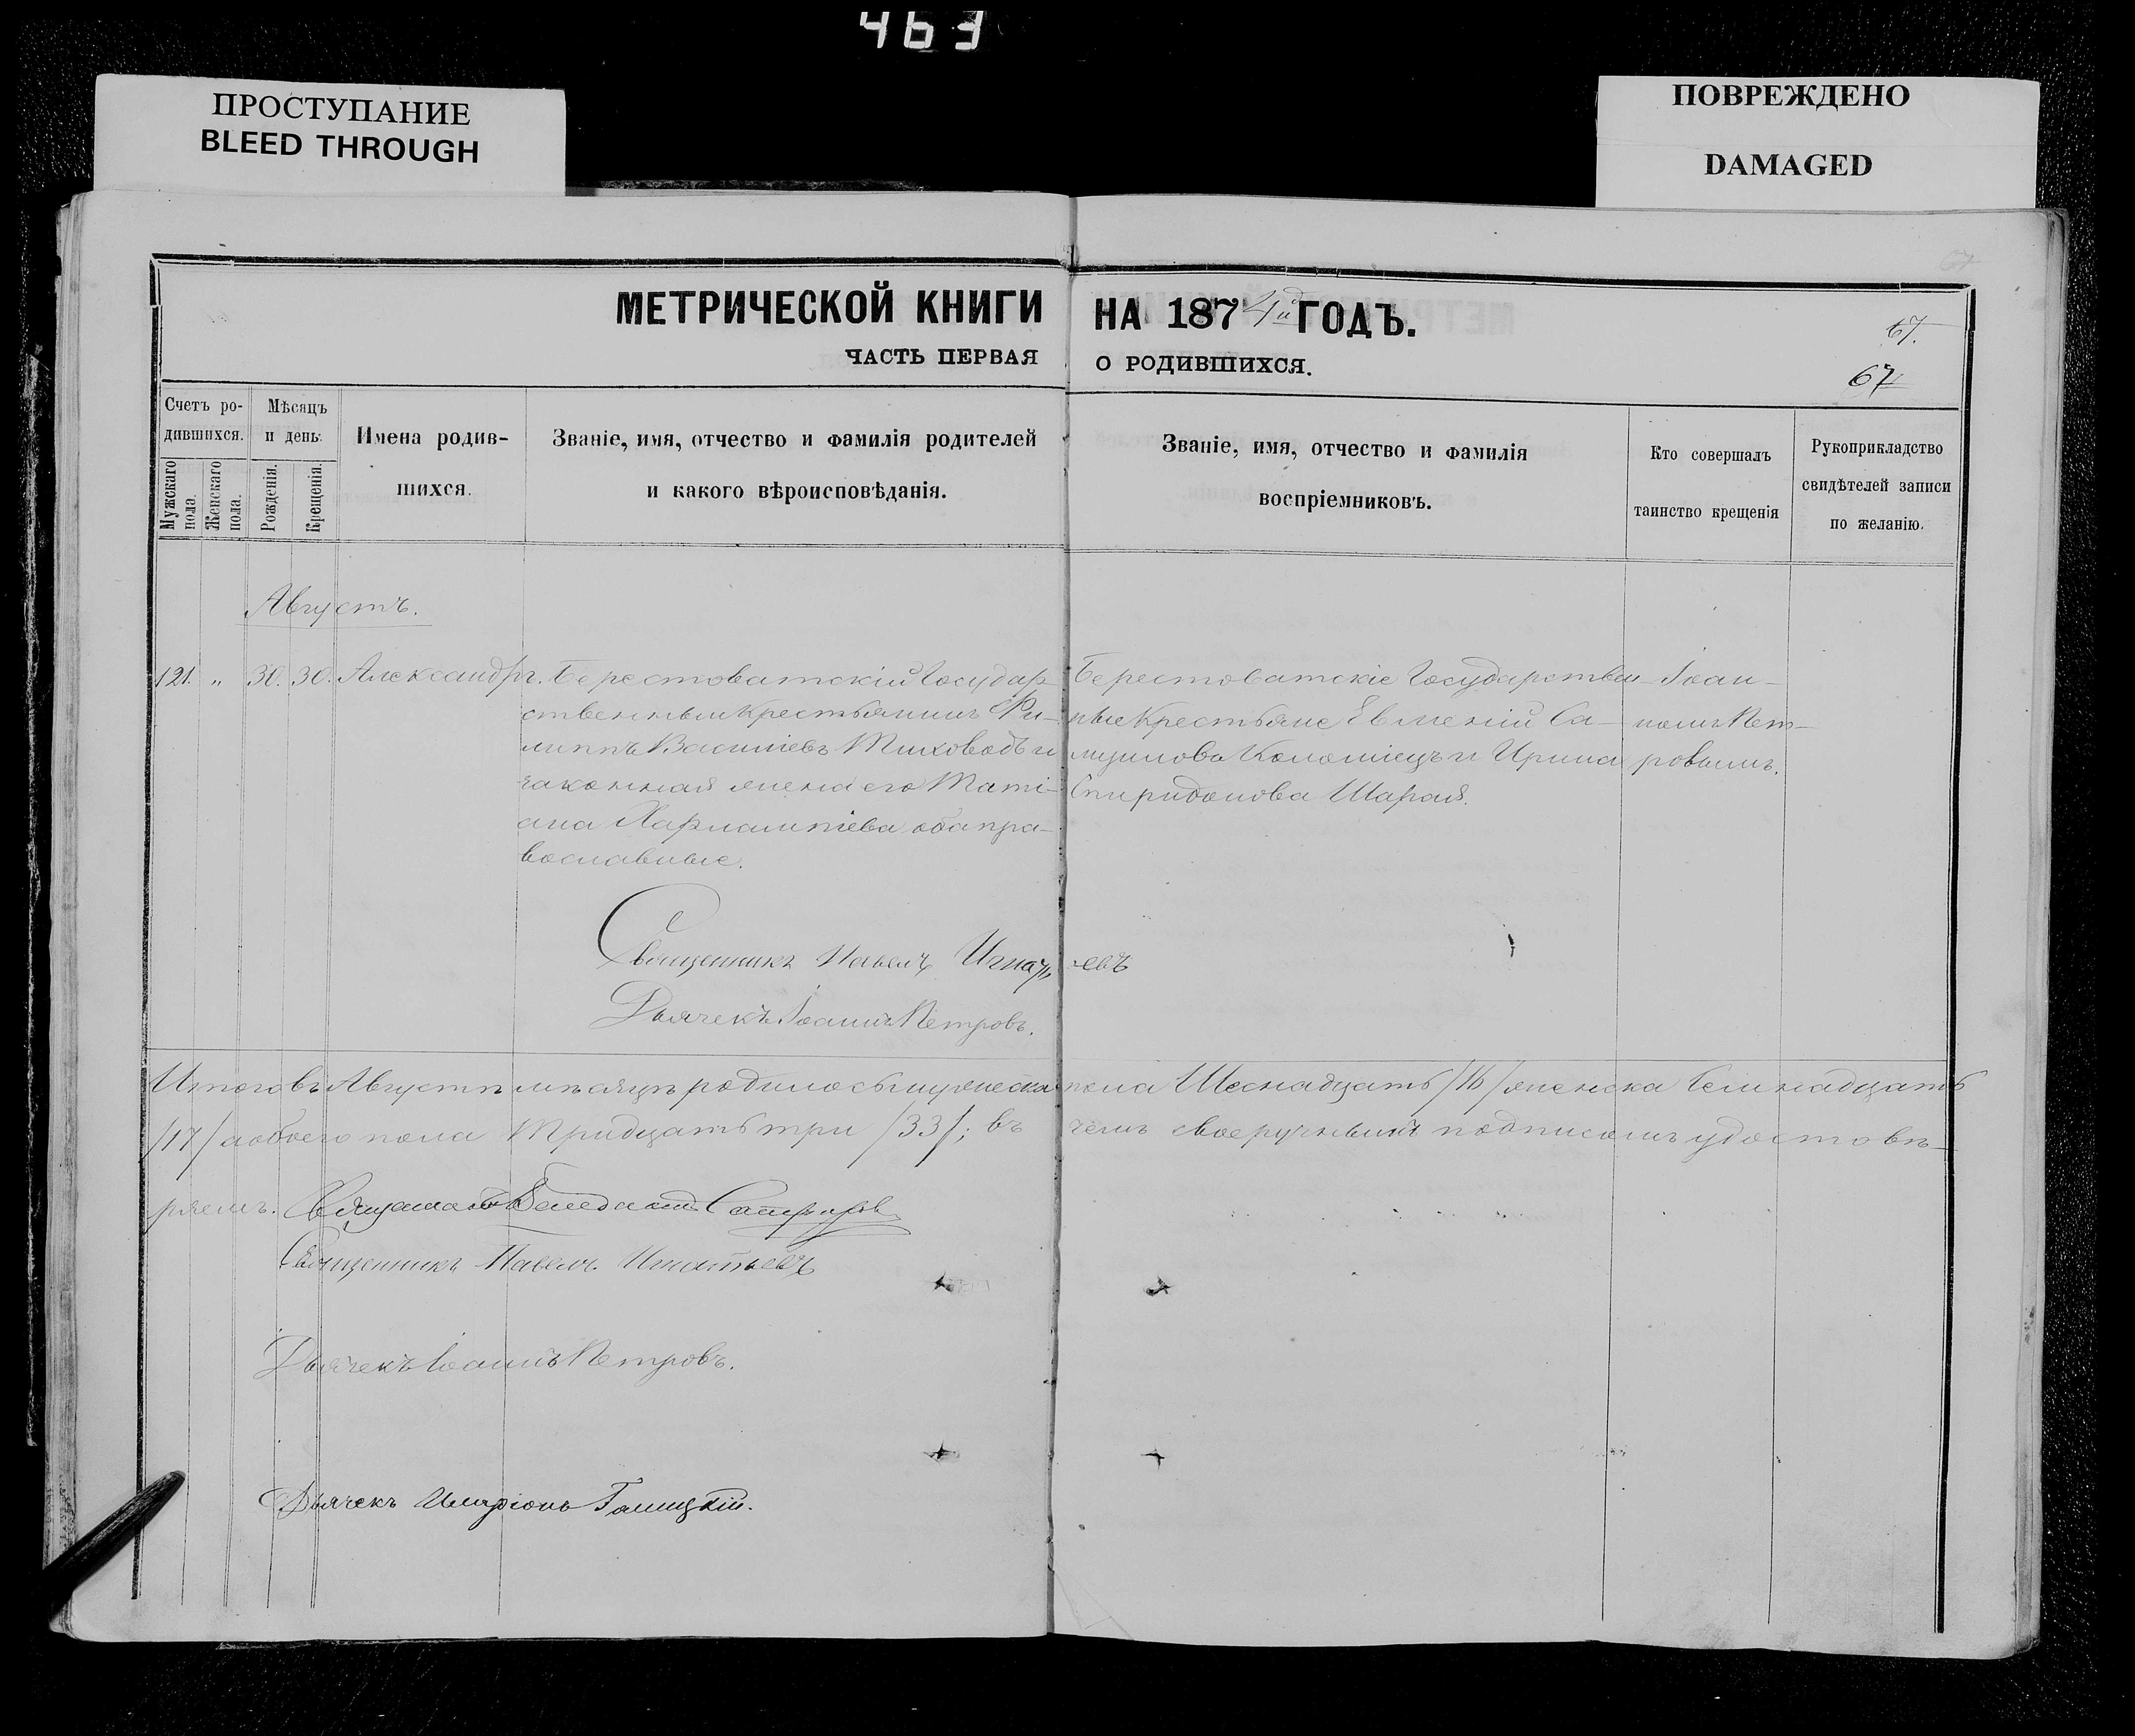 463
ПРОСТУПАНИЕ
BLEED THROUGH
ПОВРЕЖДЕНО
DAMAGED
МЕТРИЧЕСКОЙ КНИГИ НА 1874й ГОДЪ.
ЧАСТЬ ПЕРВАЯ О РОДИВШИХСЯ.
67.
67
Счетъ ро-
дившихся.
Мужскаго пола.
Женскаго пола.
Мѣсяцъ
и день.
Рожденія.
Крещенія.
Имена родив-
шихся.
Званіе, имя, отчество и фамилія родителей
и какого вѣроисповѣданія.
Званіе, имя, отчество и фамилія
воспріемниковъ.
Кто совершалъ
таинство крещенія
Рукоприкладство
свидѣтелей записи
по желанію.
Августъ.
121. „ 30. 30. Александръ.
Берестоватскій Государ
ственный крестьянинъ Фи-
липпъ Василіевъ Тиховодъ и
законная жена его Таті-
ана Харлампіева оба пра-
вославные.
Берестоватскіе Государствен-
ные Крестьяне Евменій Са-
муилова Коломіецъ и Ирина
Спиридонова Шарая.
Іоан-
номъ Пет-
ровымъ.
Священникъ Павелъ Игнатьевъ
Дьячекъ Іоаннъ Петровъ.
Итого въ Августѣ мѣсяцѣ родилось мужеска пола Шеснадцать /16/ женска Семнадцать
/17/ а обоего пола Тридцать три /33/; въ чемъ своеручнымъ подписомъ удостовѣ-
ряемъ. Священникъ
Священникъ Павелъ Игнатьевъ
Дьячекъ Іоаннъ Петровъ.
Дьячекъ Иларіонъ Галицкій.